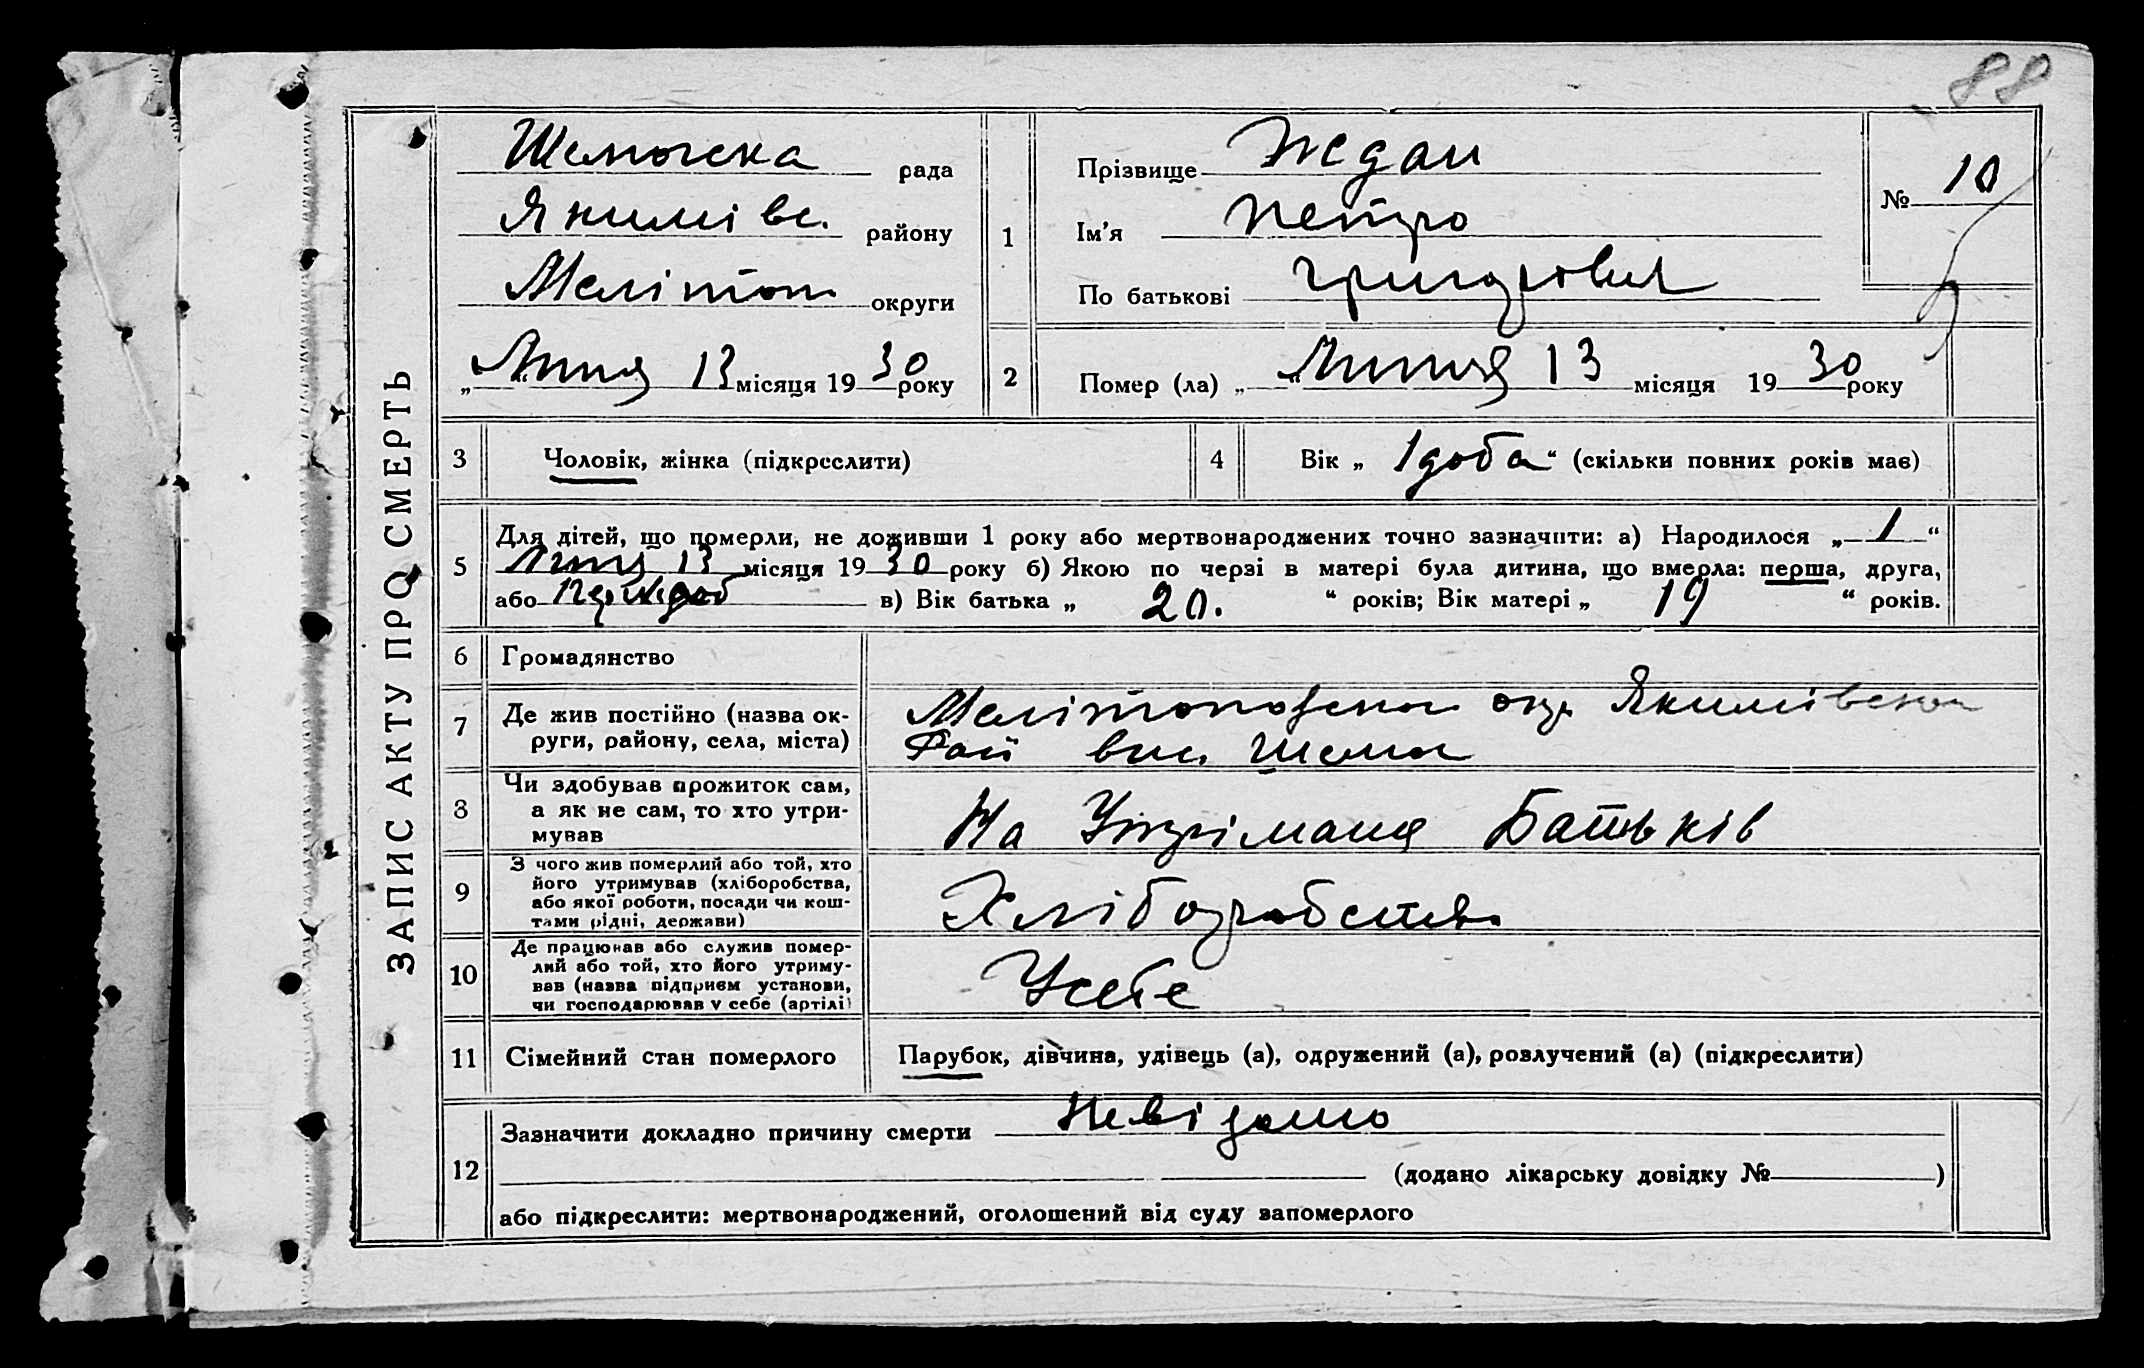 88
ЗАПИС АКТУ ПРО СМЕРТЬ
рада
Якимівс. району
Мелітоп. округи
„ “ Липня 13 місяця 1930 року
1
Прізвище Ждан
Ім’я Петро
По батькові Григорович
№ 10
2
Помер (ла) „ “ Липня 13 місяця 1930 року
3 Чоловік, жінка (підкреслити)
4 Вік „ 1 доба “ (скільки повних років має)
5 Для дітей, що померли, не доживши 1 року або мертвонароджених точно зазначити: а) Народилося „ 1 “
Липня 13 місяця 1930 року б) Якою по черзі в матері була дитина, що вмерла: перша, друга,
або в) Вік батька „ 20. “ років; Вік матері „ 19 “ років.
6 Громадянство
7 Де жив постійно (назва ок-
руги, району, села, міста)
Мелітопольска окр Якимівський
Рай вис.
8 Чи здобував прожиток сам,
а як не сам, то хто утри-
мував
На Утріманя Батьків
9 З чого жив померлий або той, хто
його утримував (хліборобства,
або якої роботи, посади чи кош-
тами рідні, держави)
Хліборобство
10 Де працював або служив помер-
лий або той, хто його утриму-
вав (назва підприєм установи,
чи господарював у себе (артілі)
Усебе
11 Сімейний стан померлого Парубок, дівчина, удівець (а), одружений (а), розлучений (а) (підкреслити)
12 Зазначити докладно причину смерти Невідомо
(додано лікарську довідку № )
або підкреслити: мертвонароджений, оголошений від суду запомерлого